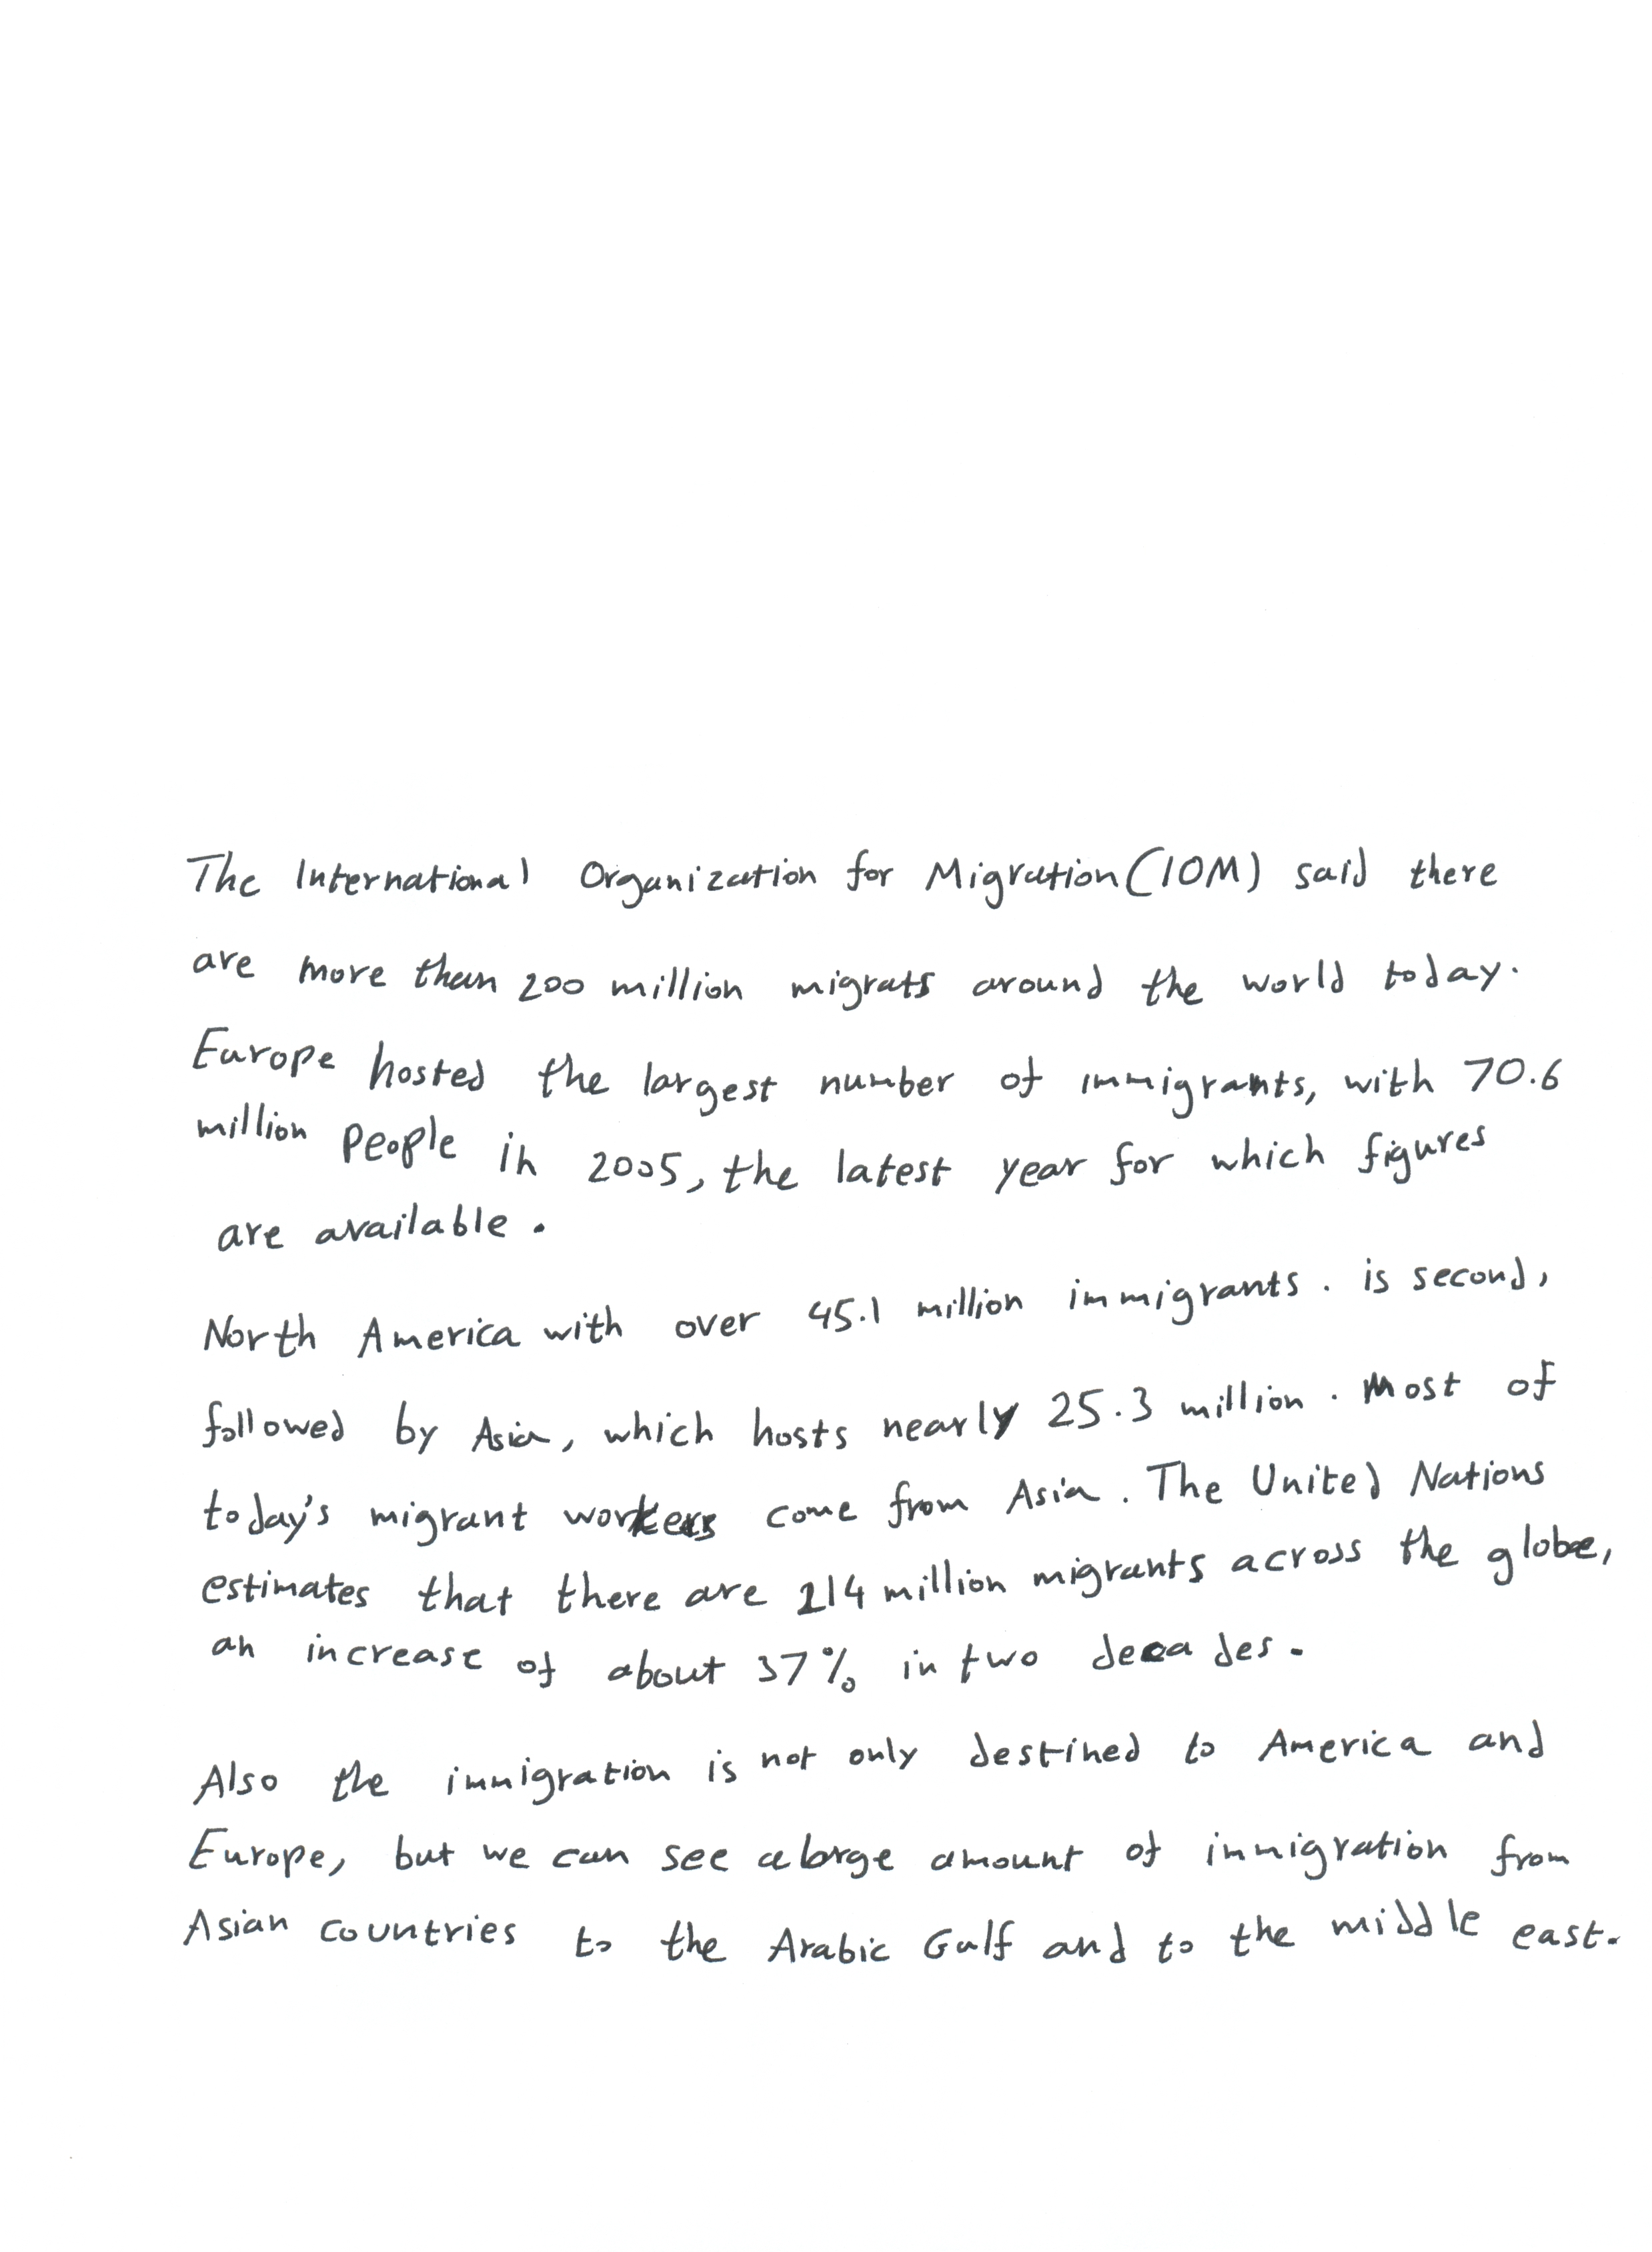 The International Organization for Migration (IOM) said there
are more than 200 million migrats around the world today.
Europe hosted the largest number of immigrants, with 70.6
million people in 2005, the latest year for which figures
are available.
North America with over 45.1 million immigrants. is second,
followed by Asia, which hosts nearly 25.3 million. Most of
today's migrant workers come from Asia. The United Nations
estimates that there are 214 million migrants across the globe,
an increase of about 37% in two decades.
Also the immigration is not only destined to America and
Europe, but we can see a large amount of immigration from
Asian countries to the Arabic Gulf and to the middle east.